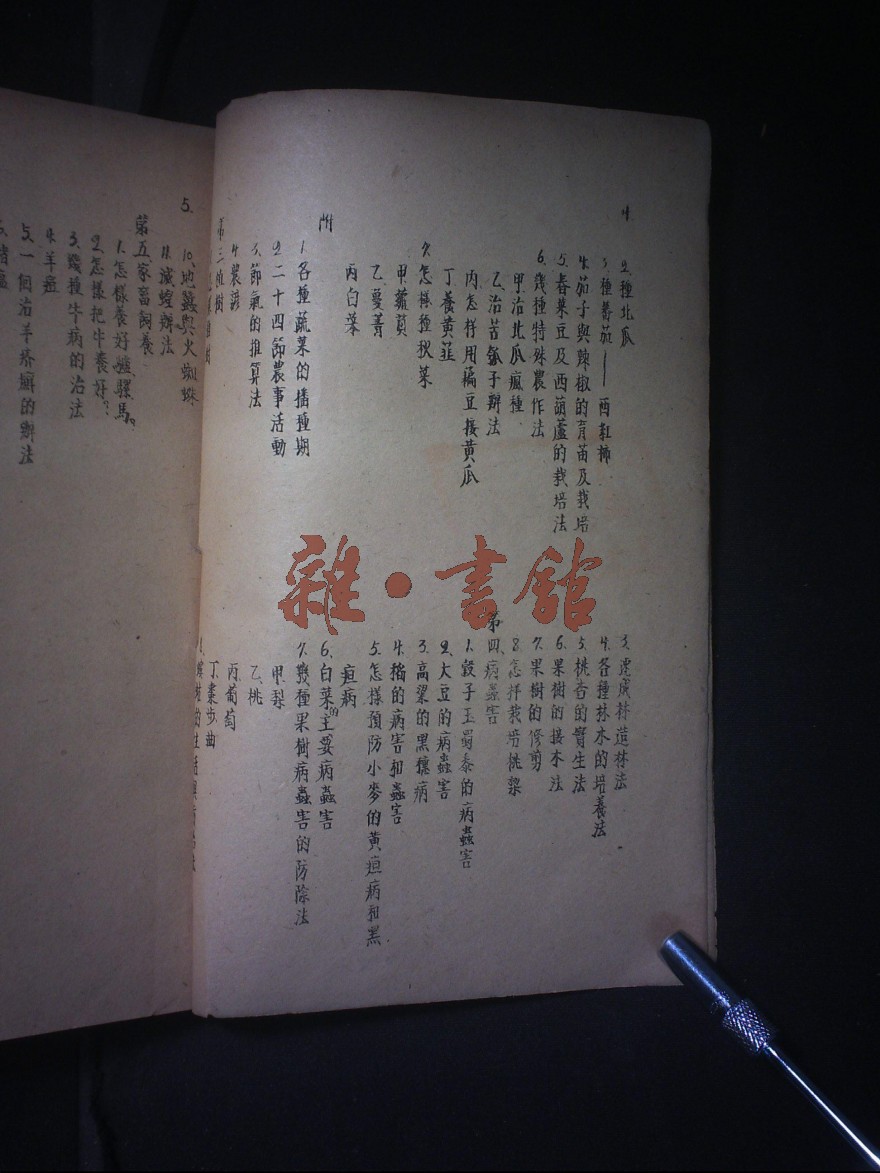 4.
2.種北瓜
3.種蕃茄——西紅柿
4.茄子與辣椒的育苗及栽培
5.春菜豆及西葫蘆的栽培法
6.幾種特殊農作法
甲治北瓜瘋種
乙治苦瓠子辦法
丙怎样用藊豆接黄瓜
丁養黄韮
7.怎樣種秋菜
甲蘿蔔
乙蔓菁
丙白菜
附
1.各種蔬菜的播種期
2.二十四節農事活動
3.節氣的推算法
4.農諺
第三植树
3.速成林造林法
4.各種林木的培養法
5.桃杏的實生法
6.果樹的接木法
7.果樹的修剪
8.怎样栽培桃黎
第四、病蟲害
1.穀子玉蜀黍的病蟲害
2.大豆的病蟲害
3.高粱的黑穗病
4.稻的病害和蟲害
5.怎樣預防小麥的黄疸病和黑
疸病
6.白菜的主要病蟲害
7.幾種果樹病蟲害的防除法
甲.梨
乙、桃
丙.葡萄
丁、棗步曲
5.
10.地蠶與火蜘蛛
11.滅蝗辦法
第五家畜飼養
1.怎樣養好驢騾馬。
2.怎樣把牛養好
3.幾種牛病的治法
4.羊癌
5.一個治羊疥癬的辦法